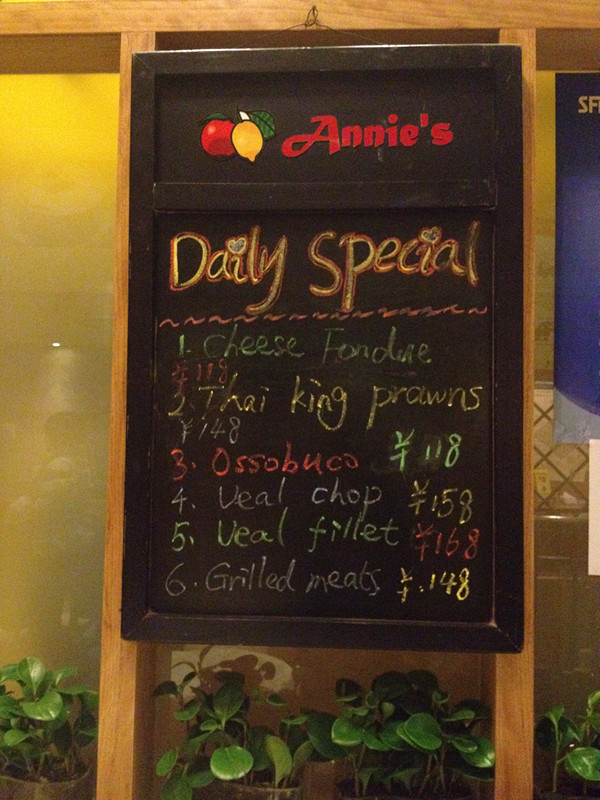 Annie's
SFI
Daily Special
1. Cheese Fondue
¥118
2. Thai king prawns
¥148
3. Ossobuco ¥118
4. Veal chop ¥158
5. Veal fillet ¥168
6. Grilled meats ¥.148